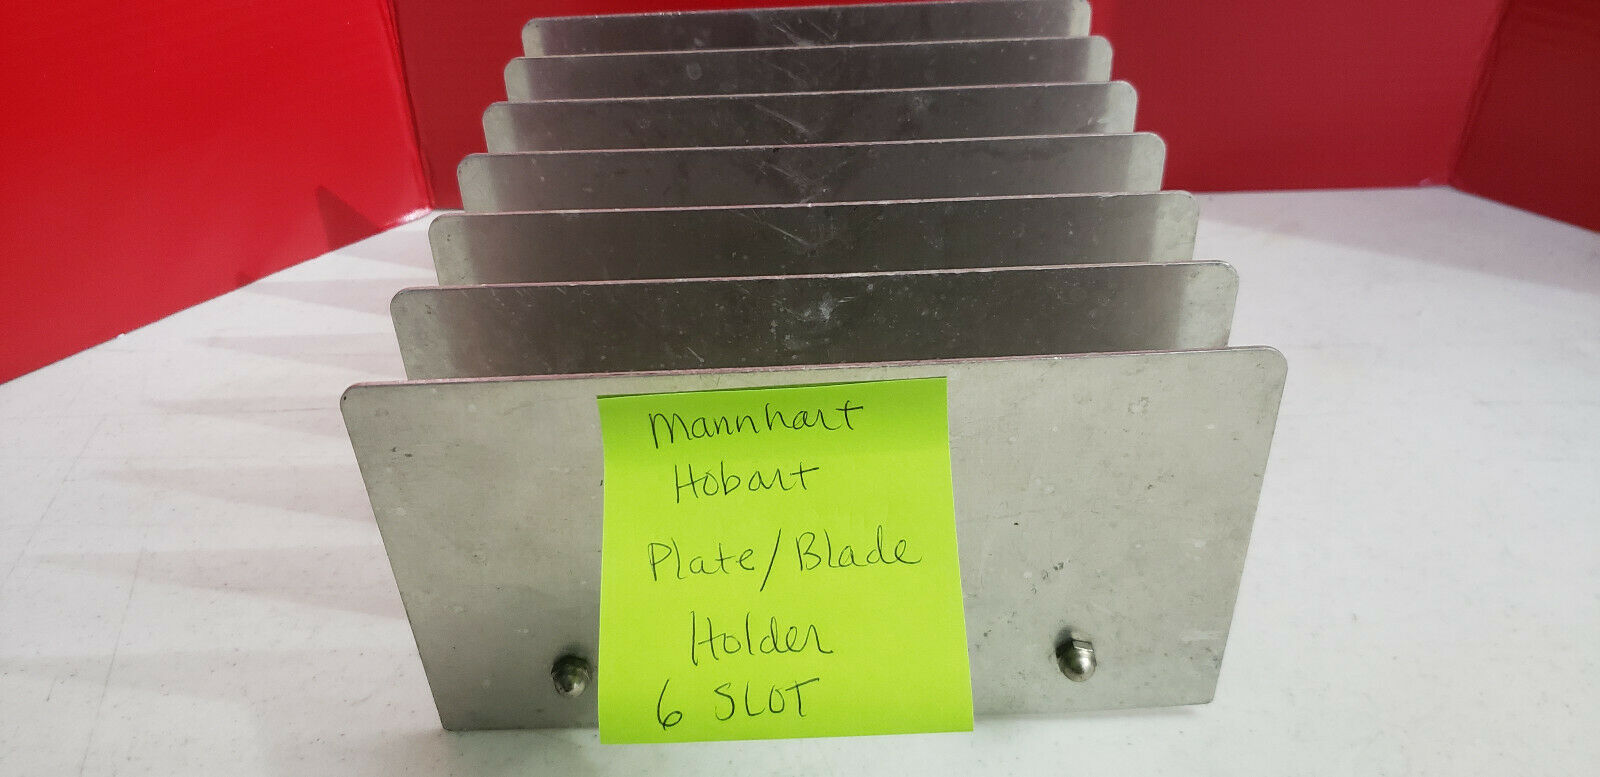 Mannhart
Hobart
Plate/Blade
Holder
6 SLOT